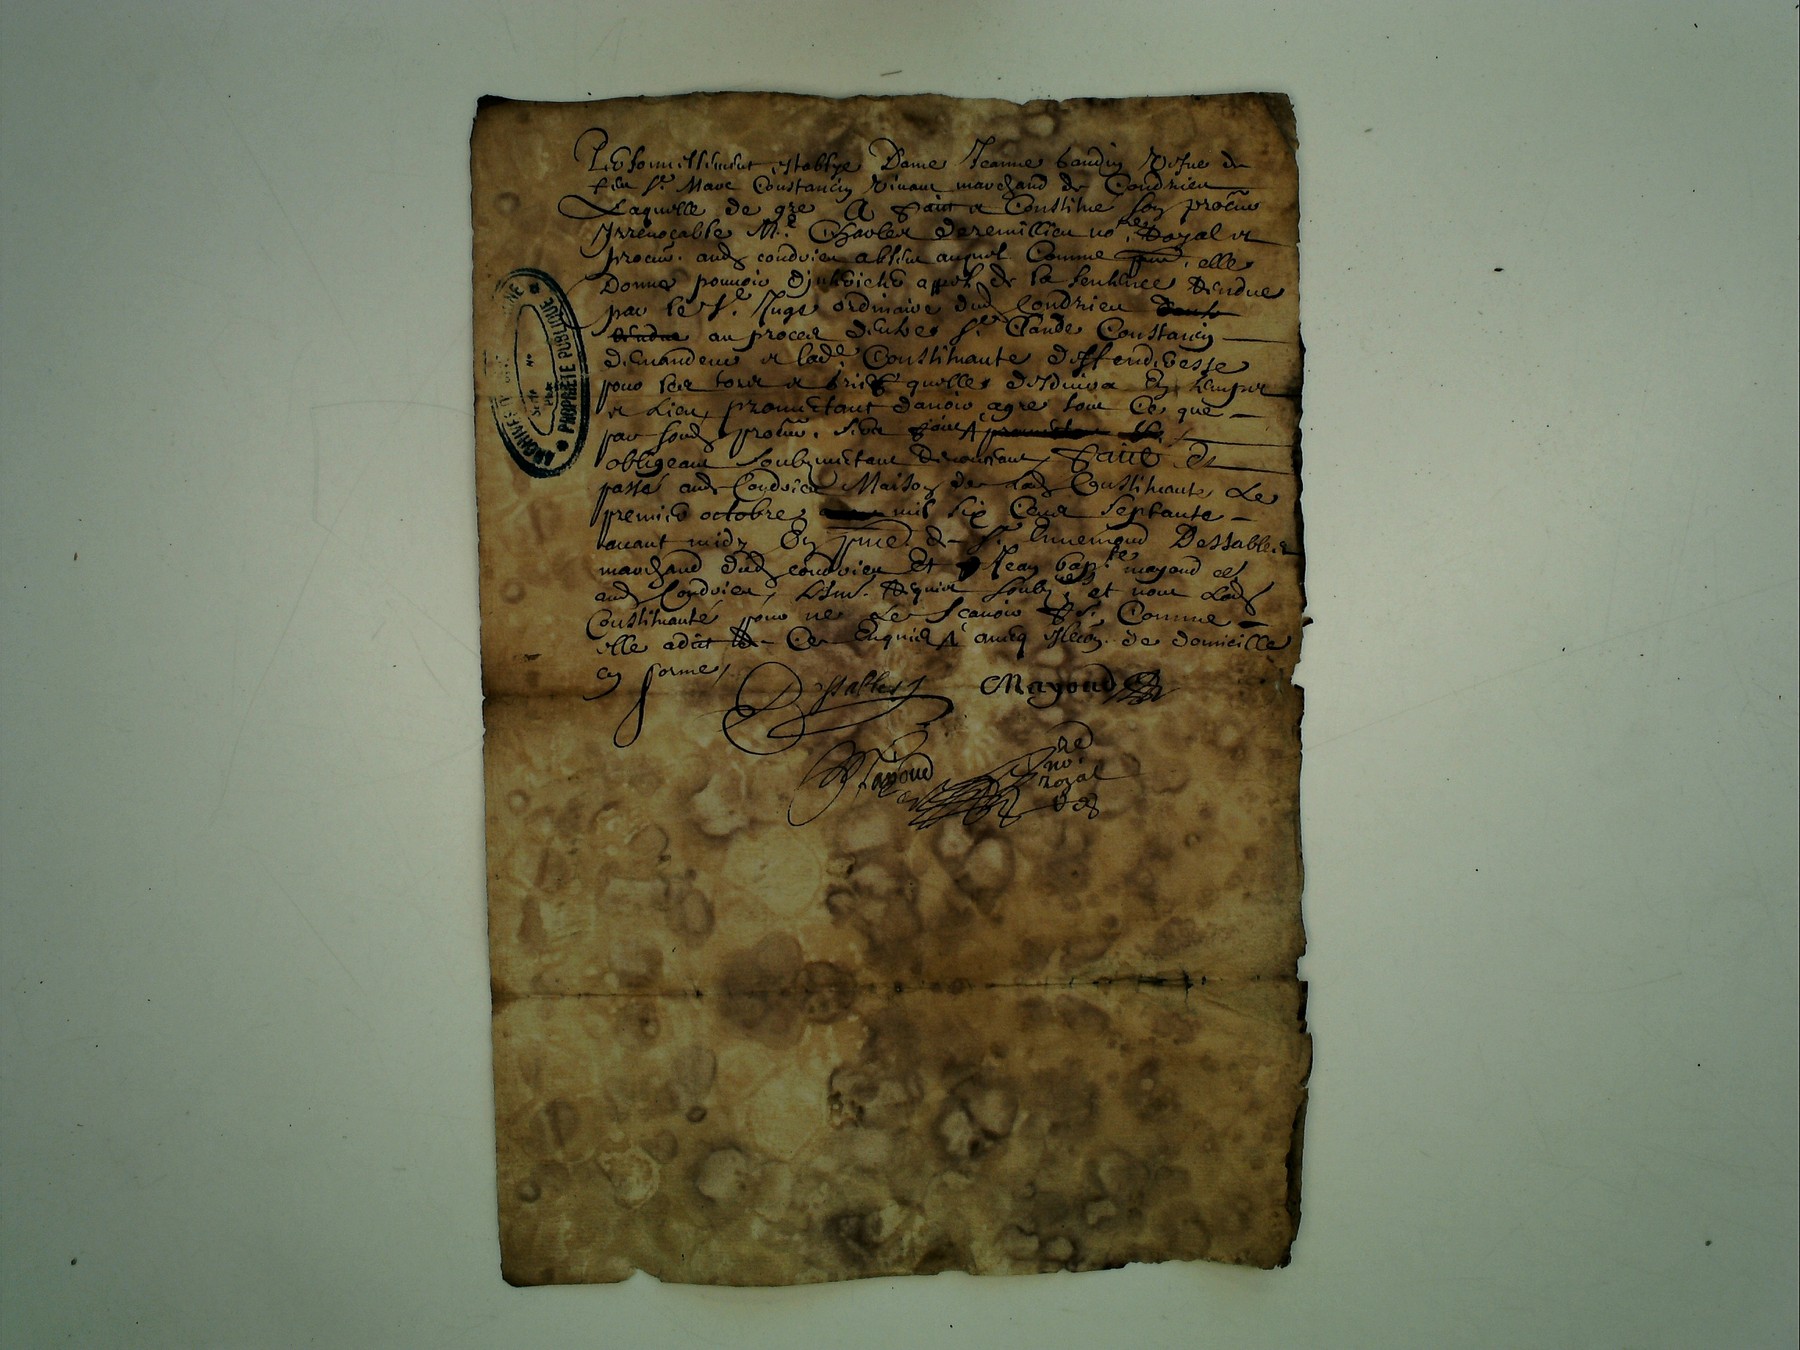 Personnellement establye Dame Jeanne baudin vefue de
feu Sr. Marc Constancin vivant marchand de Condrieu
Laquelle de gre A faict et Constitue son procur
Irrevocable Me. Charles deremillieu nore. Royal et
procur. aud condrieu absent auquel Comme elle
Donne pouvoir d'interiecter appel de la sentence Rendue
par le Sr. Juge ordinaire dud Condrieu
au proces d'entre Sr. Claude Constancin
demandeur et lade. Constituante deffenderesse
pour les torts et griefz quelle desduira En temps
et Lieu, promettant davoir agre tout Ce que
par sond procur. sera faict
obligeant soubzmettant Renonceant, Faict et
passé aud Condrieu Maison de lad Constituante Le
premier octobre mil six Cent septante
avant midy En pnce. de Sr. Ennemond Dessables
marchand dud condrieu Et Jean bapte. mayoud clz
aud Condrieu, tesm. Requis soubznes. et non Lad
Constituante pour ne le scavoir Comme
elle a dict de Ce Enquise A avecq eslecon. de domicille
en forme,
Dessables Mayoud
Mayoud
no. royal
ARCHIVES PROPRIÉTÉ PUBLIQUE